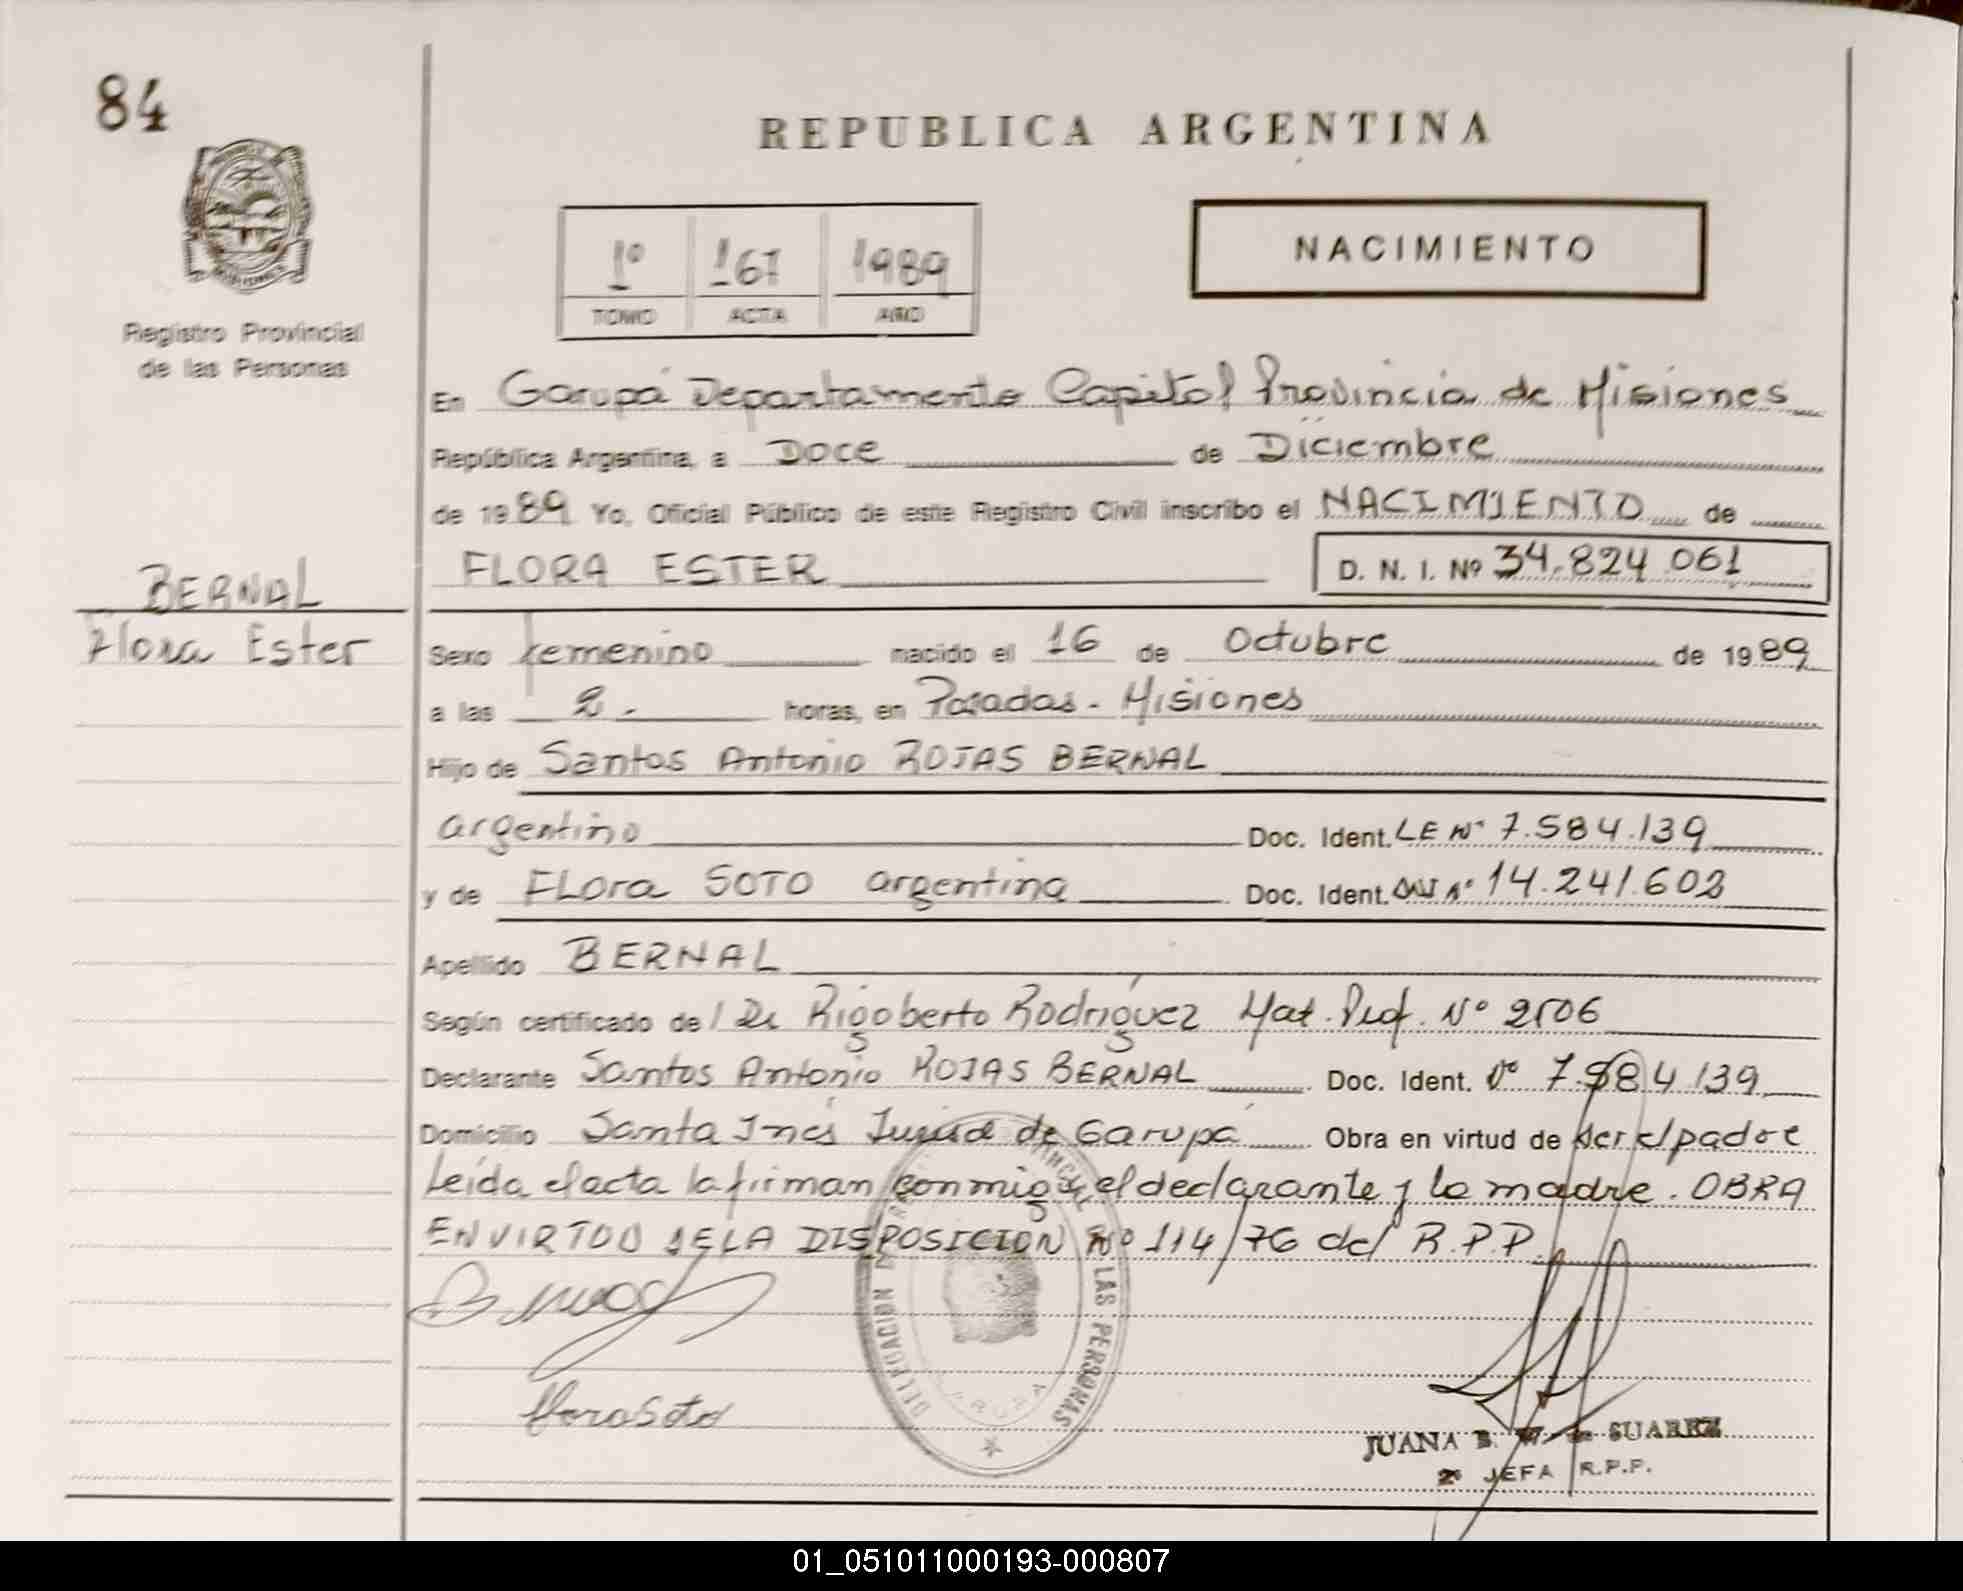 84
REPUBLICA ARGENTINA
NACIMIENTO
1º 167 1989
TOMO ACTA AÑO
Registro Provincial
de las Personas
En Garupá Departamento Capital Provincia de Misiones
República Argentina, a Doce de Diciembre
de 1989 Yo, Oficial Público de este Registro Civil inscribo el NACIMIENTO de
FLORA ESTER D. N. I. Nº 34.824.061
BERNAL
Flora Ester
Sexo femenino nacido el 16 de Octubre de 1989
a las 2. horas, en Posadas - Misiones
Hijo de Santos Antonio ROJAS BERNAL
argentino Doc. Ident. LE Nº 7.584.139
y de FLora SOTO argentina Doc. Ident. DNI Nº 14.241.602
Apellido BERNAL
Según certificado de Dr Rigoberto Rodríguez Mat. Prof. Nº 2506
Declarante Santos Antonio ROJAS BERNAL Doc. Ident. Nº 7.584.139
Domicilio Santa Inés de Garupá Obra en virtud de ser el padre
Leída el acta la firman conmigo el declarante y la madre. OBRA
EN VIRTUD DE LA DISPOSICION Nº 114/76 del R.P.P.
Flora Soto
DELEGACION LAS PERSONAS
JUANA B. de SUAREZ
2º JEFA R.P.P.
01_051011000193-000807